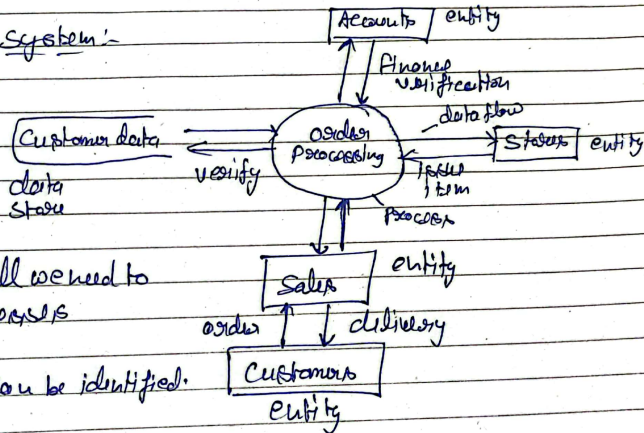 Accounts entity
System :-
Finance
verification
dataflow
Customer data
order
processing
Stores entity
verify
issue
item
data
store
process
ll we need to
entity
Sales
esses
order delivery
can be identified.
Customers
entity